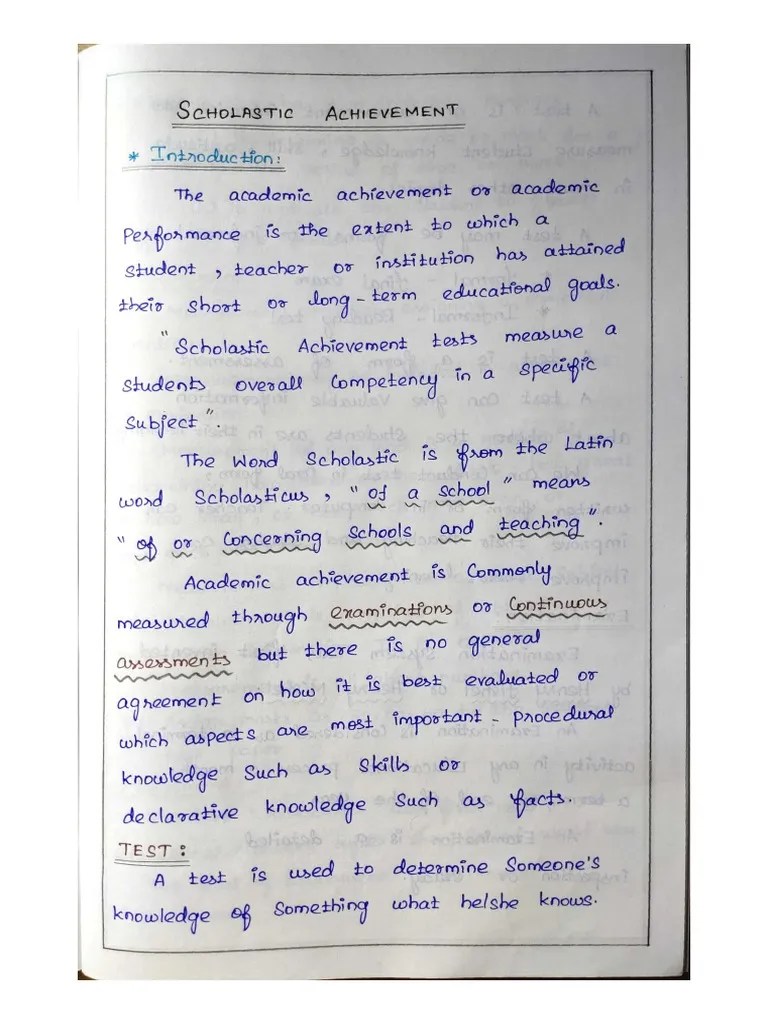 SCHOLASTIC ACHIEVEMENT
* Introduction:
The academic achievement or academic
Performance is the extent to which a
student, teacher or institution has attained
their short or long-term educational goals.
"Scholastic Achievement tests measure a
students overall Competency in a specific
Subject".
The Word Scholastic is from the Latin
word Scholasticus, "of a school" means
"of or Concerning Schools and teaching".
Academic achievement is Commonly
measured through examinations or Continuous
assessments but there is no general
agreement on how it is best evaluated or
which aspects are most important - Procedural
knowledge Such as Skills or
declarative knowledge Such as facts.
TEST:
A test is used to determine Someone's
knowledge of Something what he/she knows.